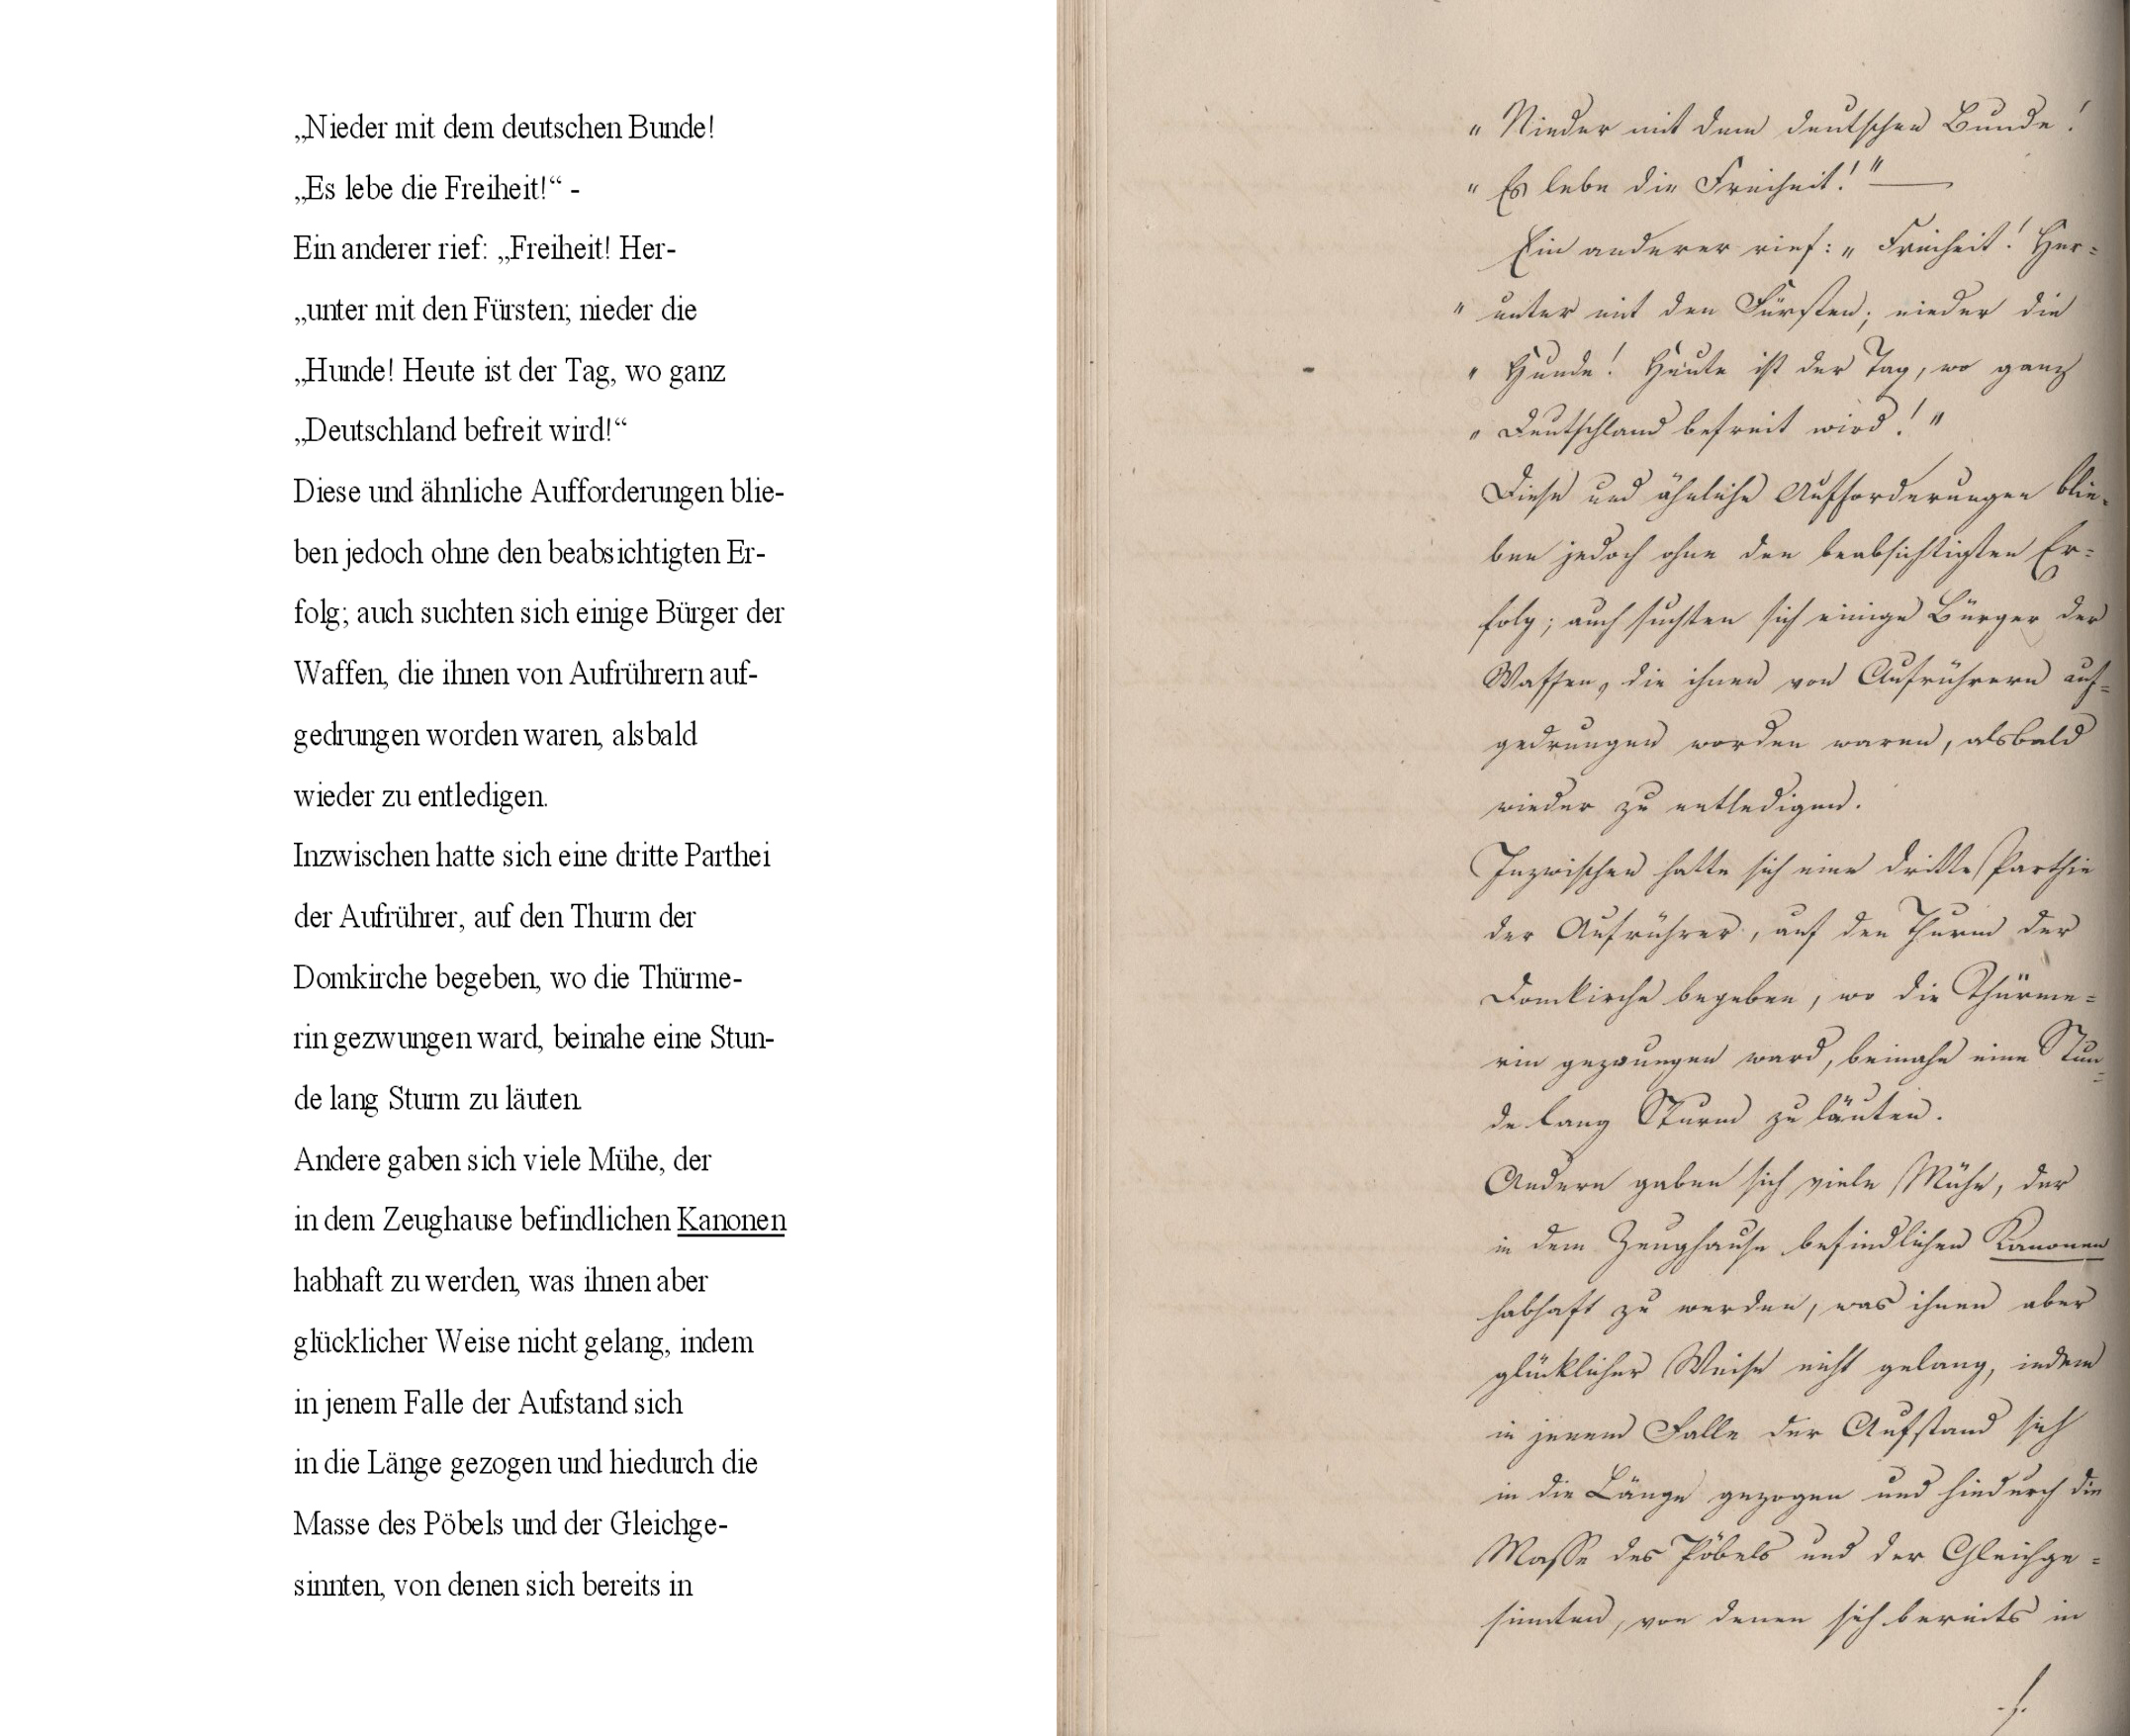 „Nieder mit dem deutschen Bunde!
„Es lebe die Freiheit!“ -
Ein anderer rief: „Freiheit! Her-
„unter mit den Fürsten; nieder die
„Hunde! Heute ist der Tag, wo ganz
„Deutschland befreit wird!“
Diese und ähnliche Aufforderungen blie-
ben jedoch ohne den beabsichtigten Er-
folg; auch suchten sich einige Bürger der
Waffen, die ihnen von Aufrührern auf-
gedrungen worden waren, alsbald
wieder zu entledigen.
Inzwischen hatte sich eine dritte Parthei
der Aufrührer, auf den Thurm der
Domkirche begeben, wo die Thürme-
rin gezwungen ward, beinahe eine Stun-
de lang Sturm zu läuten.
Andere gaben sich viele Mühe, der
in dem Zeughause befindlichen Kanonen
habhaft zu werden, was ihnen aber
glücklicher Weise nicht gelang, indem
in jenem Falle der Aufstand sich
in die Länge gezogen und hiedurch die
Masse des Pöbels und der Gleichge-
sinnten, von denen sich bereits in
„Nieder mit dem deutschen Bunde!
„Es lebe die Freiheit!“ —
Ein anderer rief: „Freiheit! Her-
„unter mit den Fürsten; nieder die
„Hunde! Heute ist der Tag, wo ganz
„Deutschland befreit wird!“
Diese und ähnliche Aufforderungen blie-
ben jedoch ohne den beabsichtigten Er-
folg; auch suchten sich einige Bürger der
Waffen, die ihnen von Aufrührern auf-
gedrungen worden waren, alsbald
wieder zu entledigen.
Inzwischen hatte sich eine dritte Parthie
der Aufrührer, auf den Thurm der
Domkirche begeben, wo die Thürme-
rin gezwungen ward, beinahe eine Stun-
de lang Sturm zu läuten.
Andere gaben sich viele Mühe, der
in dem Zeughause befindlichen Kanonen
habhaft zu werden, was ihnen aber
glücklicher Weise nicht gelang, indem
in jenem Falle der Aufstand sich
in die Länge gezogen und hiedurch die
Masse des Pöbels und der Gleichge-
sinnten, von denen sich bereits in